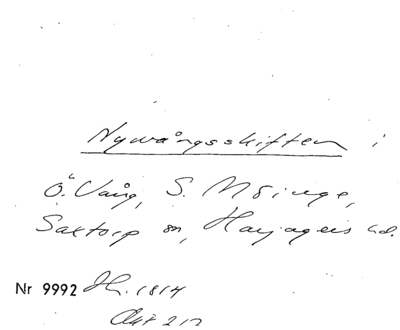 Nyvångsskiften i
Ö. Vång, S. Möinge,
Saxtorp sn, Harjagers hd.
Nr 9992 Jh. 1814
Akt 217